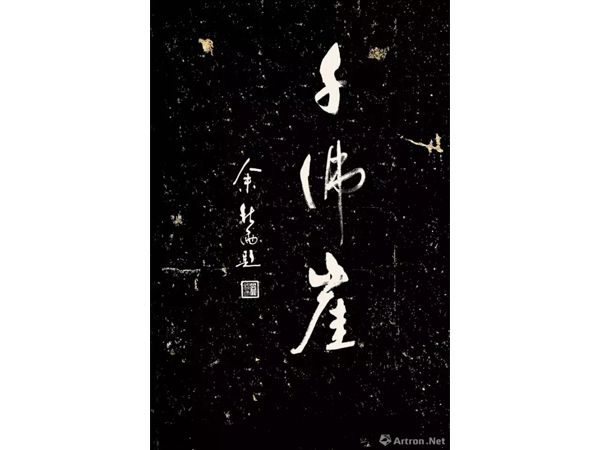 千佛崖
余秋雨題
Artron.Net